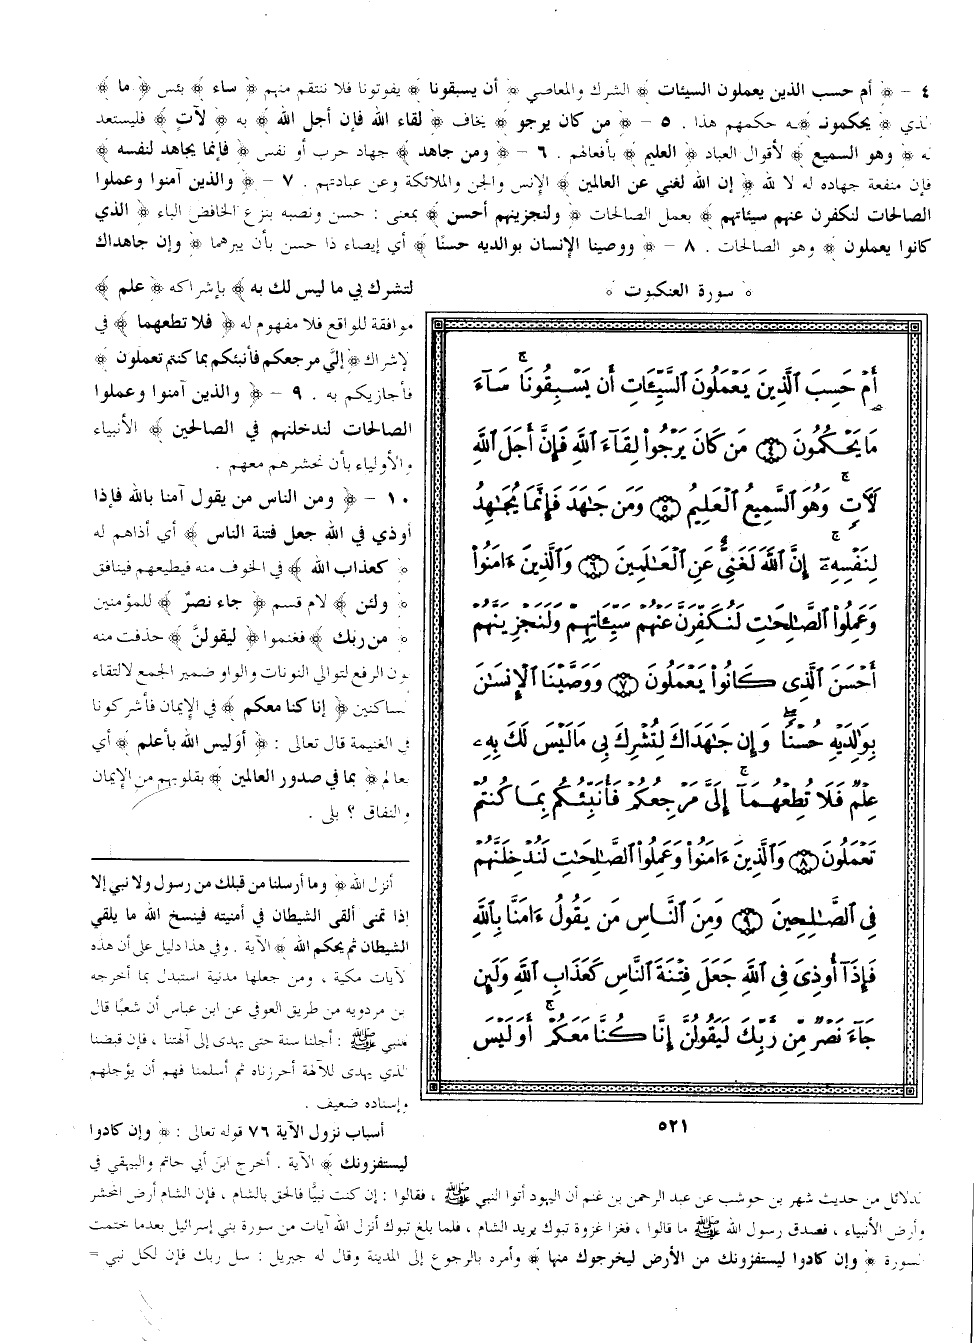 ٤ - ﴿ أم حسب الذين يعملون السيئات ﴾ الشرك والمعاصي ﴿ أن يسبقونا ﴾ يفوتونا فلا ننتقم منهم ﴿ ساء ﴾ بئس ﴿ ما ﴾
لذي ﴿ يحكمونـ ﴾ـه حكمهم هذا . ٥ - ﴿ من كان يرجو ﴾ يخاف ﴿ لقاء الله فإن أجل الله ﴾ به ﴿ لآتٍ ﴾ فليستعد
له ﴿ وهو السميع ﴾ لأقوال العباد ﴿ العليم ﴾ بأفعالهم . ٦ - ﴿ ومن جاهد ﴾ جهاد حرب أو نفس ﴿ فإنما يجاهد لنفسه ﴾
فإن منفعة جهاده له لا لله ﴿ إن الله لغني عن العالمين ﴾ الإنس والجن والملائكة وعن عبادتهم . ٧ - ﴿ والذين آمنوا وعملوا
الصالحات لنكفرن عنهم سيئاتهم ﴾ بعمل الصالحات ﴿ ولنجزينهم أحسن ﴾ بمعنى : حسن ونصبه بنزع الخافض الباء ﴿ الذي
كانوا يعملون ﴾ وهو الصالحات . ٨ - ﴿ ووصينا الإنسان بوالديه حسنًا ﴾ أي إيصاء ذا حسن بأن يبرهما ﴿ وإن جاهداك
لتشرك بي ما ليس لك به ﴾ بإشراكه ﴿ علم ﴾
موافقة للواقع فلا مفهوم له ﴿ فلا تطعهما ﴾ في
لإشراك ﴿ إليَّ مرجعكم فأنبئكم بما كنتم تعملون ﴾
فأجازيكم به . ٩ - ﴿ والذين آمنوا وعملوا
الصالحات لندخلنهم في الصالحين ﴾ الأنبياء
والأولياء بأن نحشرهم معهم .
١٠ - ﴿ ومن الناس من يقول آمنا بالله فإذا
أوذي في الله جعل فتنة الناس ﴾ أي أذاهم له
﴿ كعذاب الله ﴾ في الخوف منه فيطيعهم فينافق
﴿ ولئن ﴾ لام قسم ﴿ جاء نصرٌ ﴾ للمؤمنين
﴿ من ربك ﴾ فغنموا ﴿ ليقولنَّ ﴾ حذفت منه
نون الرفع لتوالي النونات والواو ضمير الجمع لالتقاء
لساكنين ﴿ إنا كنا معكم ﴾ في الإيمان فأشركونا
في الغنيمة قال تعالى : ﴿ أوَليس الله بأعلم ﴾ أي
بعالم ﴿ بما في صدور العالمين ﴾ بقلوبهم من الإيمان
والنفاق ؟ بلى .
﴿ سورة العنكبوت ﴾
أَمْ حَسِبَ ٱلَّذِينَ يَعْمَلُونَ ٱلسَّيِّـَٔاتِ أَن يَسْبِقُونَا ۚ سَآءَ
مَا يَحْكُمُونَ ۝٤ مَن كَانَ يَرْجُوا۟ لِقَآءَ ٱللَّهِ فَإِنَّ أَجَلَ ٱللَّهِ
لَـَٔاتٍ ۚ وَهُوَ ٱلسَّمِيعُ ٱلْعَلِيمُ ۝٥ وَمَن جَـٰهَدَ فَإِنَّمَا يُجَـٰهِدُ
لِنَفْسِهِۦٓ ۚ إِنَّ ٱللَّهَ لَغَنِىٌّ عَنِ ٱلْعَـٰلَمِينَ ۝٦ وَٱلَّذِينَ ءَامَنُوا۟
وَعَمِلُوا۟ ٱلصَّـٰلِحَـٰتِ لَنُكَفِّرَنَّ عَنْهُمْ سَيِّـَٔاتِهِمْ وَلَنَجْزِيَنَّهُمْ
أَحْسَنَ ٱلَّذِى كَانُوا۟ يَعْمَلُونَ ۝٧ وَوَصَّيْنَا ٱلْإِنسَـٰنَ
بِوَٰلِدَيْهِ حُسْنًا ۖ وَإِن جَـٰهَدَاكَ لِتُشْرِكَ بِى مَا لَيْسَ لَكَ بِهِۦ
عِلْمٌ فَلَا تُطِعْهُمَآ ۚ إِلَىَّ مَرْجِعُكُمْ فَأُنَبِّئُكُم بِمَا كُنتُمْ
تَعْمَلُونَ ۝٨ وَٱلَّذِينَ ءَامَنُوا۟ وَعَمِلُوا۟ ٱلصَّـٰلِحَـٰتِ لَنُدْخِلَنَّهُمْ
فِى ٱلصَّـٰلِحِينَ ۝٩ وَمِنَ ٱلنَّاسِ مَن يَقُولُ ءَامَنَّا بِٱللَّهِ
فَإِذَآ أُوذِىَ فِى ٱللَّهِ جَعَلَ فِتْنَةَ ٱلنَّاسِ كَعَذَابِ ٱللَّهِ وَلَئِن
جَآءَ نَصْرٌ مِّن رَّبِّكَ لَيَقُولُنَّ إِنَّا كُنَّا مَعَكُمْ ۚ أَوَلَيْسَ
٥٢١
أنزل الله ﴿ وما أرسلنا من قبلك من رسول ولا نبي إلا
إذا تمنى ألقى الشيطان في أمنيته فينسخ الله ما يلقي
الشيطان ثم يحكم الله ﴾ الآية . وفي هذا دليل على أن هذه
لآيات مكية ، ومن جعلها مدنية استبدل بما أخرجه
بن مردويه من طريق العوفي عن ابن عباس أن شعبًا قال
لنبي ﷺ : أجلنا سنة حتى يهدى إلى آلهتنا ، فإن قبضنا
لذي يهدى للآلهة أحرزناه ثم أسلمنا فهم أن يؤجلهم
وإسناده ضعيف .
أسباب نزول الآية ٧٦ قوله تعالى : ﴿ وإن كادوا
ليستفزونك ﴾ الآية . أخرج ابن أبي حاتم والبيهقي في
لدلائل من حديث شهر بن حوشب عن عبد الرحمن بن غنم أن اليهود أتوا النبي ﷺ ، فقالوا : إن كنت نبيًّا فالحق بالشام ، فإن الشام أرض المحشر
وأرض الأنبياء ، فصدق رسول الله ﷺ ما قالوا ، فغزا غزوة تبوك يريد الشام ، فلما بلغ تبوك أنزل الله آيات من سورة بني إسرائيل بعدما ختمت
لسورة ﴿ وإن كادوا ليستفزونك من الأرض ليخرجوك منها ﴾ وأمره بالرجوع إلى المدينة وقال له جبريل : سل ربك فإن لكل نبي =